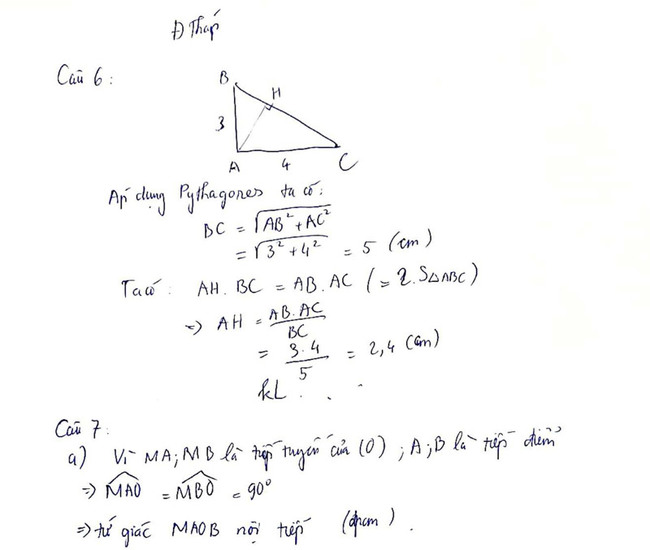 Đ Tháp
Câu 6:
B
H
3
A
4
C
Áp dụng Pythagores ta có:
BC = √(AB² + AC²)
= √(3² + 4²) = 5 (cm)
Ta có: AH.BC = AB.AC (= 2.S△ABC)
=> AH = AB.AC / BC
= 3.4 / 5 = 2,4 (cm)
KL . . .
Câu 7:
a) Vì MA; MB là tiếp tuyến của (O); A; B là tiếp điểm
=> ∠MAO = ∠MBO = 90°
=> tứ giác MAOB nội tiếp (đpcm).